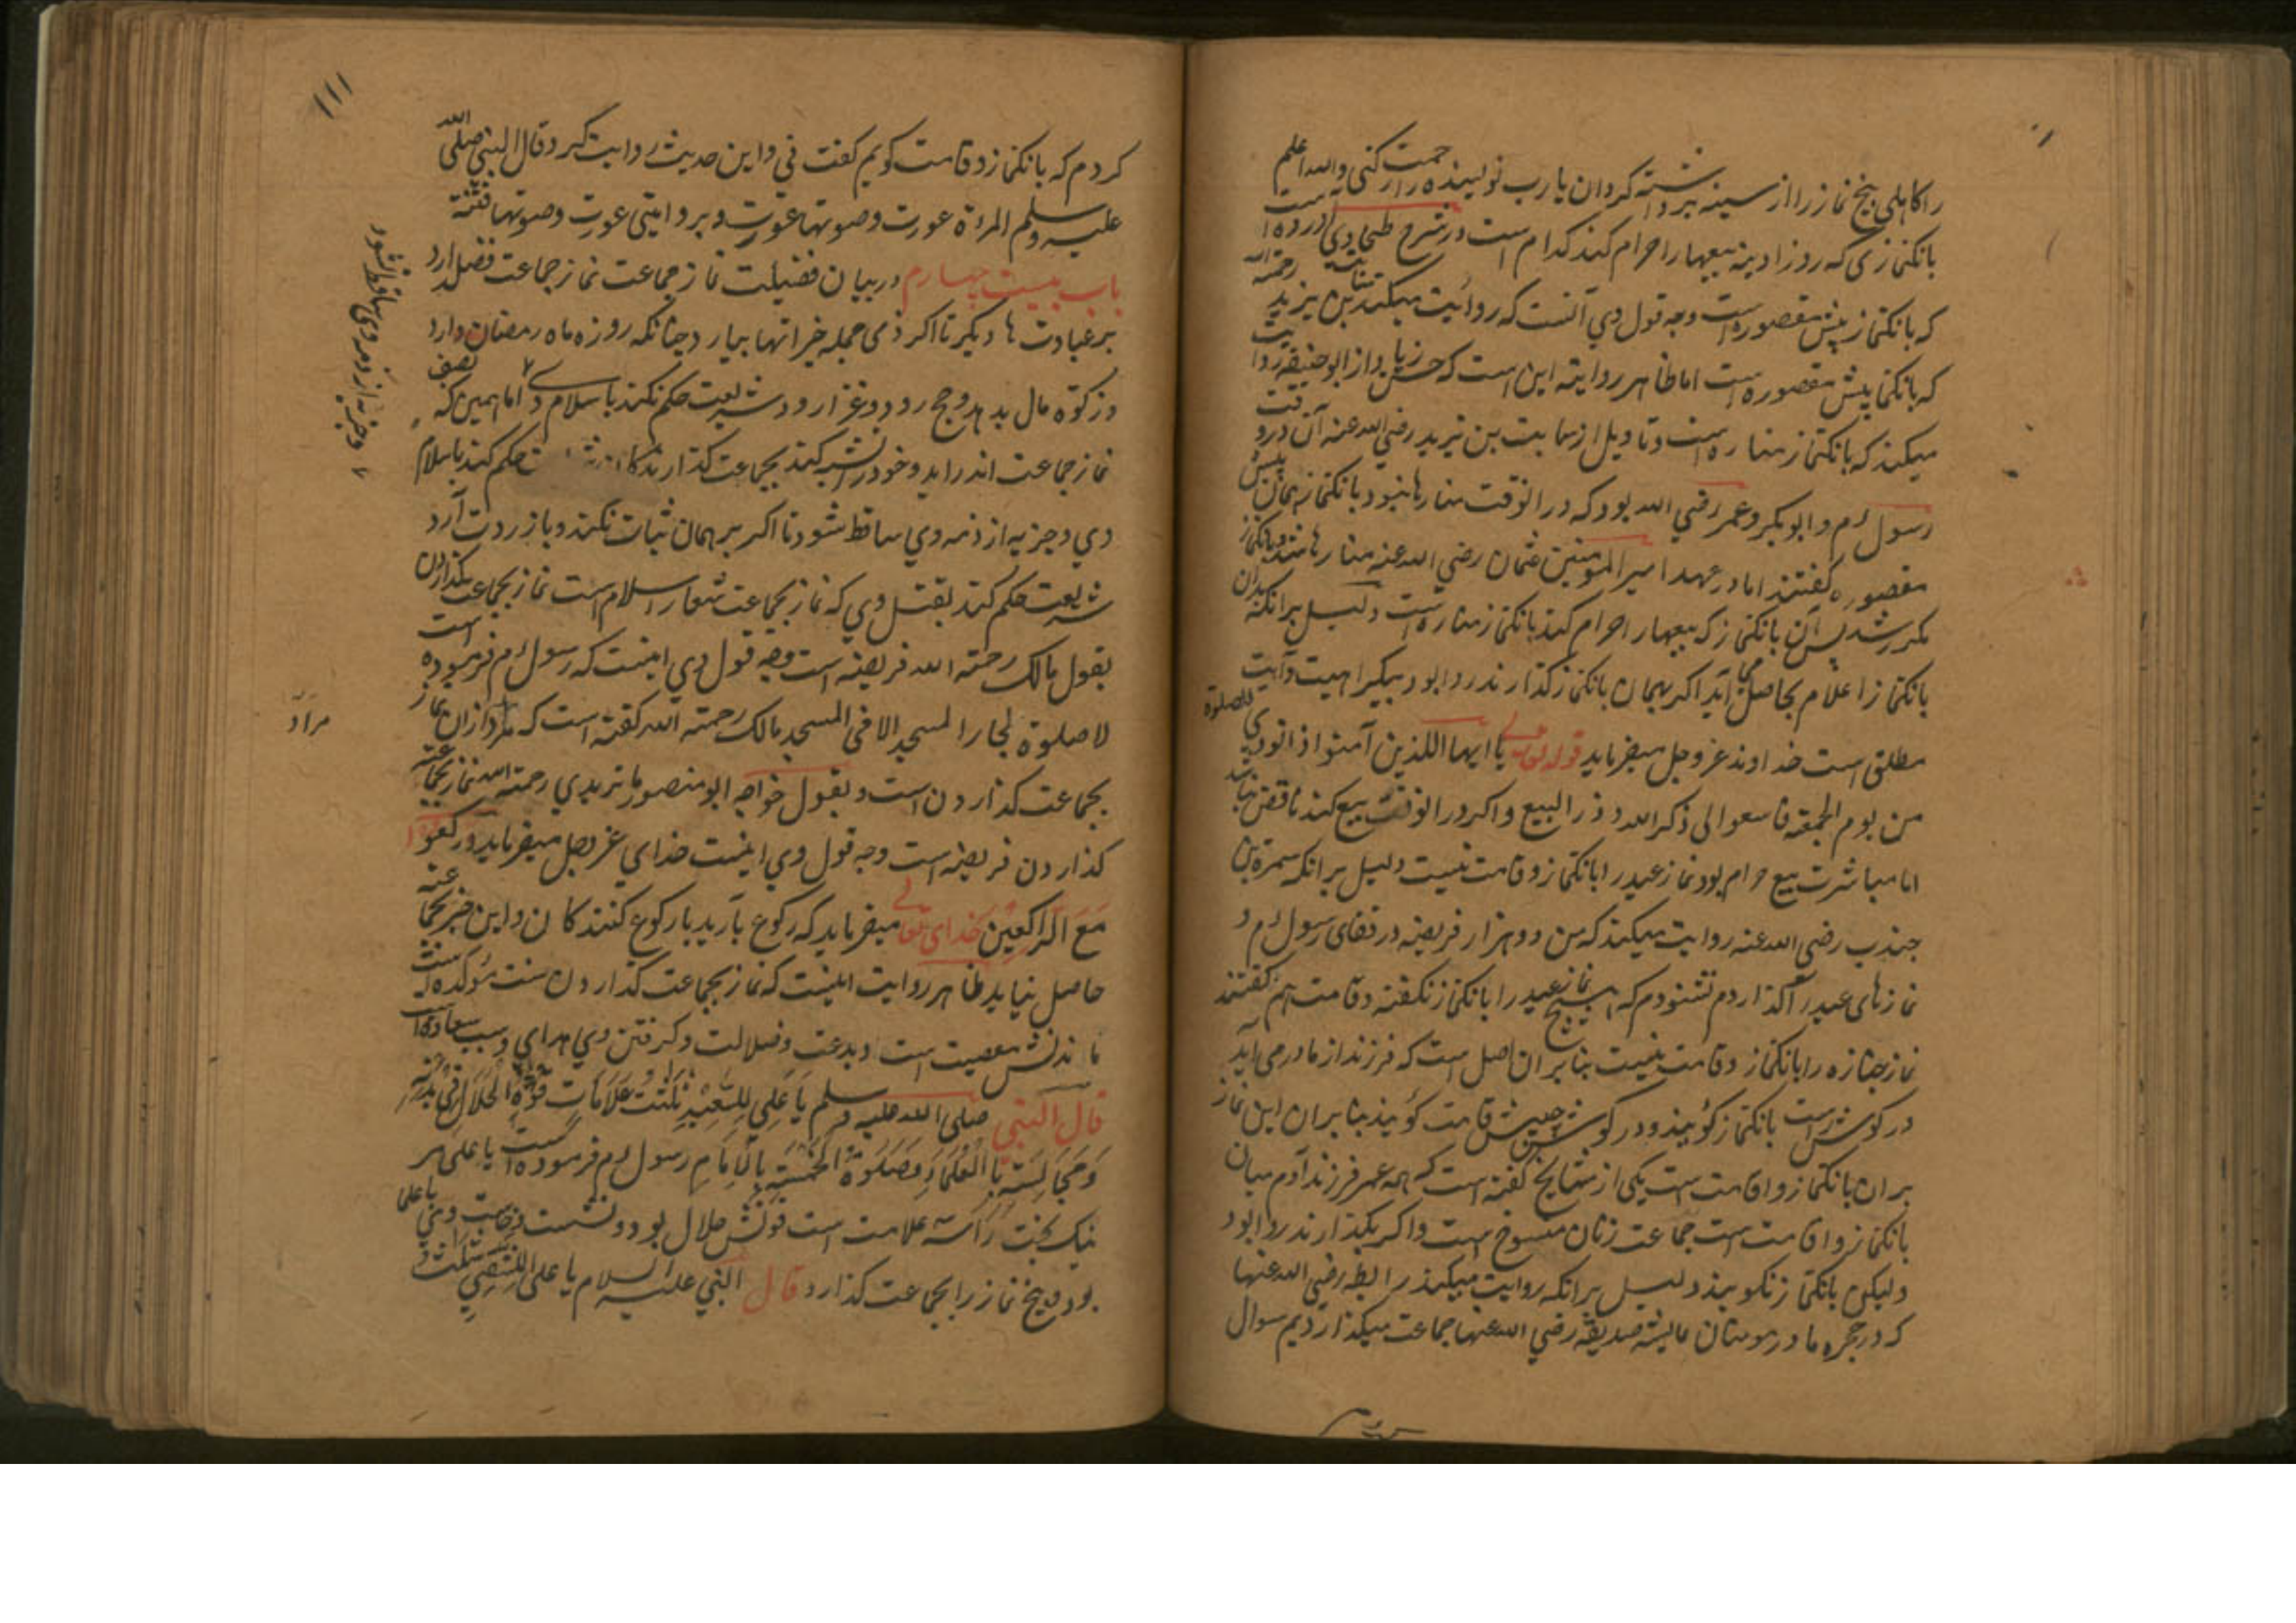 را کاهلی بیخ نماز را از سینه برداشته کردان یا رب نویسنده را رحمت کنی والله اعلم
بانکنمازی که روز ادینه بیعها را حرام کند کدام است در شرح طحاوی آورده است
که بانکنماز پیش مقصوره است وجه قول وي آنست که روائیت میکند ثابت بن یزید رحمة الله
که بانکنما پیش مقصوره است اما ظاهر روایته این است که حسن زیاد از ابو حنیفه روایت
میکند که بانکنماز مناره است وتاویل از ثابت بن یزید رضي الله عنه آن در وقت
رسول م و ابو بکر و عمر رضي الله بود که در انوقت مناره ها نبود بانکنماز همان پیش
مقصوره کفتند اما در عهد امیر المومنین عثمان رضي الله عنه مناره ها شد و بانکنماز
مکرر شد پس آن بانکنماز که بیعها را حرام کند بانکنماز مناره است دلیل برانکه بدان
بانکنماز اعلام بحاصل می آید اکر بهمان بانکنماز کذارند روا بود بیکراهیت وآیت
مطلق است خداوند عز وجل میفرماید قوله تعالی یا ایها اللذین آمنوا اذا نودي للصلوة
من یوم الجمعة فاسعوا الی ذکر الله وذر البیع واکر در انوقت بیع کند ناقض نباشد
اما مباشرت بیع حرام بود نماز عید را بانکنماز وقامت نیست دلیل برانکه سمرة بن
جندب رضي الله عنه روایت میکند که من دو هزار فریضه در قفای رسول م و
نمازهای عید را کذاردم نشنودم که هیچ نماز عید را بانکنماز نکفته وقامت هم نکفتند
نماز جنازه را بانکنماز وقامت نیست بنابران اصل است که فرزند از مادر می آید
در کوش راست بانکنماز کویند ودر کوش چپش قامت کویند بنابران این نماز
بران بانکنماز واقامت است یکی از مشایخ کفته است که همه عمر فرزند آدم میان
بانکنماز واقامت است جماعت زنان منسوخ است واکر بکذارند روا بود
ولیکن بانکنماز نکویند دلیل برانکه روایت میکند رابطه رضي الله عنها
که در حجره مادر مومنان عایشه صدیقه رضي الله عنها جماعت میکذاردیم سوال
۱۱۱
کردم که بانکنماز وقامت کویم کفت نی و این حدیث روایت کرد وقال النبي صلی الله
علیه وسلم المرءة عورت وصوتها عورت و بروایتی عورت وصوتها فتنة
باب بیست چهارم در بیان فضیلت نماز جماعت نماز جماعت فضل دارد
بر عبادت ها دیکر تا اکر ذمی جمله خیراتها بیارد چنانکه روزه ماه رمضان دارد
وزکوة مال بدهد وحج رود وغزا رود شریعت حکم نکند باسلام وی اما همین که
نماز جماعت اندر اید وخود را بجماعت کذارند حکم کند باسلام
وي وجزیه از ذمه وي ساقط شود تا اکر بر همان ثبات نکند وباز ردت آرد
شریعت حکم کند بقتل وي که نماز بجماعت شعار اسلام است نماز بجماعت کذاردن
بقول مالک رحمته الله فریضه است وجه قول وي اینست که رسول م فرموده است
لا صلوة لجار المسجد الا فی المسجد مالک رحمته الله کفته است که مراد ازان نماز
بجماعت کذاردن است وبقول خواجه ابو منصور ماتریدي رحمته الله نماز بجماعت
کذاردن فریضه است وجه قول وي اینست خدای عز وجل میفرماید ورکعوا
مَعَ الرَّاکِعِین خدای تعالی میفرماید که رکوع بآرید با رکوع کنندکان واین خبر بجماعت
حاصل نیاید ظاهر روایت اینست که نماز بجماعت کذاردن سنت مؤکده است
ماندنش معصیت است وبدعت وضلالت وکرفتن وي هدای وسبب سعادت
قال النَّبی صلی الله علیه وسلم یَا عَلِی لِلسَّعِیْدِ ثَلٰثَتُ عَلَامَاتٍ قُوَّةُ الْحَلَالِ فِی بَلَدِهِ
وَمَجَالِسَتِهِ بِا الْعُلَمَاءِ وَصَلَوٰةُ الْخَمْسَةِ بِالْاِمَامِ رسول م فرموده است یا علی هر
نیک بخت را سه علامت است قوتش حلال بود ونشست وخاست وی با علما
بود وپنج نماز را بجماعت کذارد قال النبي علیه السلام یا علی لِلشَّقِيِّ ثلثت
وجزیه از ذمه وی ساقط شود
مراد